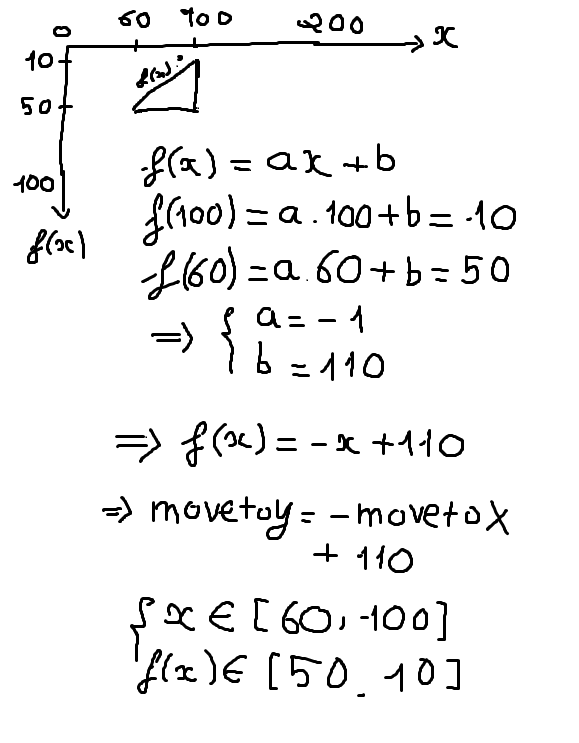 0 60 100 200
x
10
f(x)
50
100
f(x)
f(x) = ax + b
f(100) = a . 100 + b = 10
f(60) = a . 60 + b = 50
=> { a = - 1
b = 110
=> f(x) = - x + 110
=> movetoy = - movetox
+ 110
{ x ∈ [ 60, 100 ]
f(x) ∈ [ 50 . 10 ]